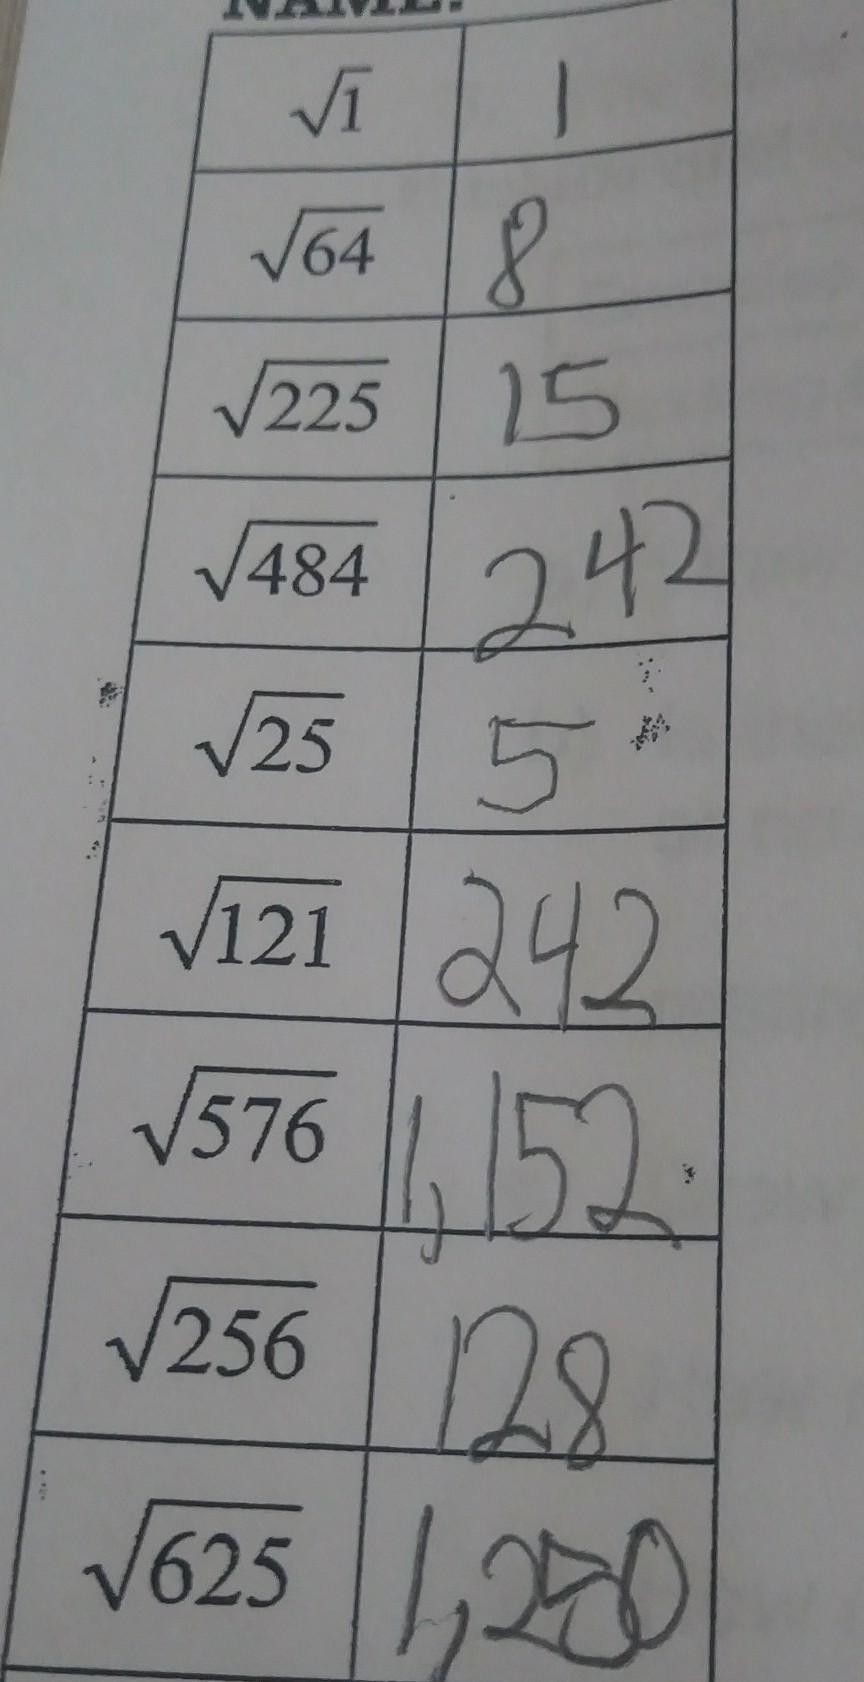 NAME:
√1 1
√64 8
√225 15
√484 242
√25 5
√121 242
√576 1,152
√256 128
√625 1,250